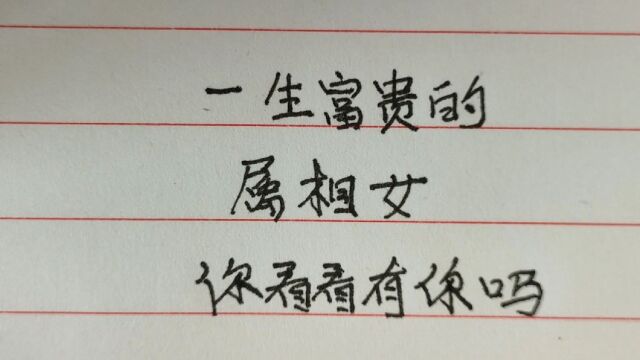 一生富贵的
属相女
你看看有你吗